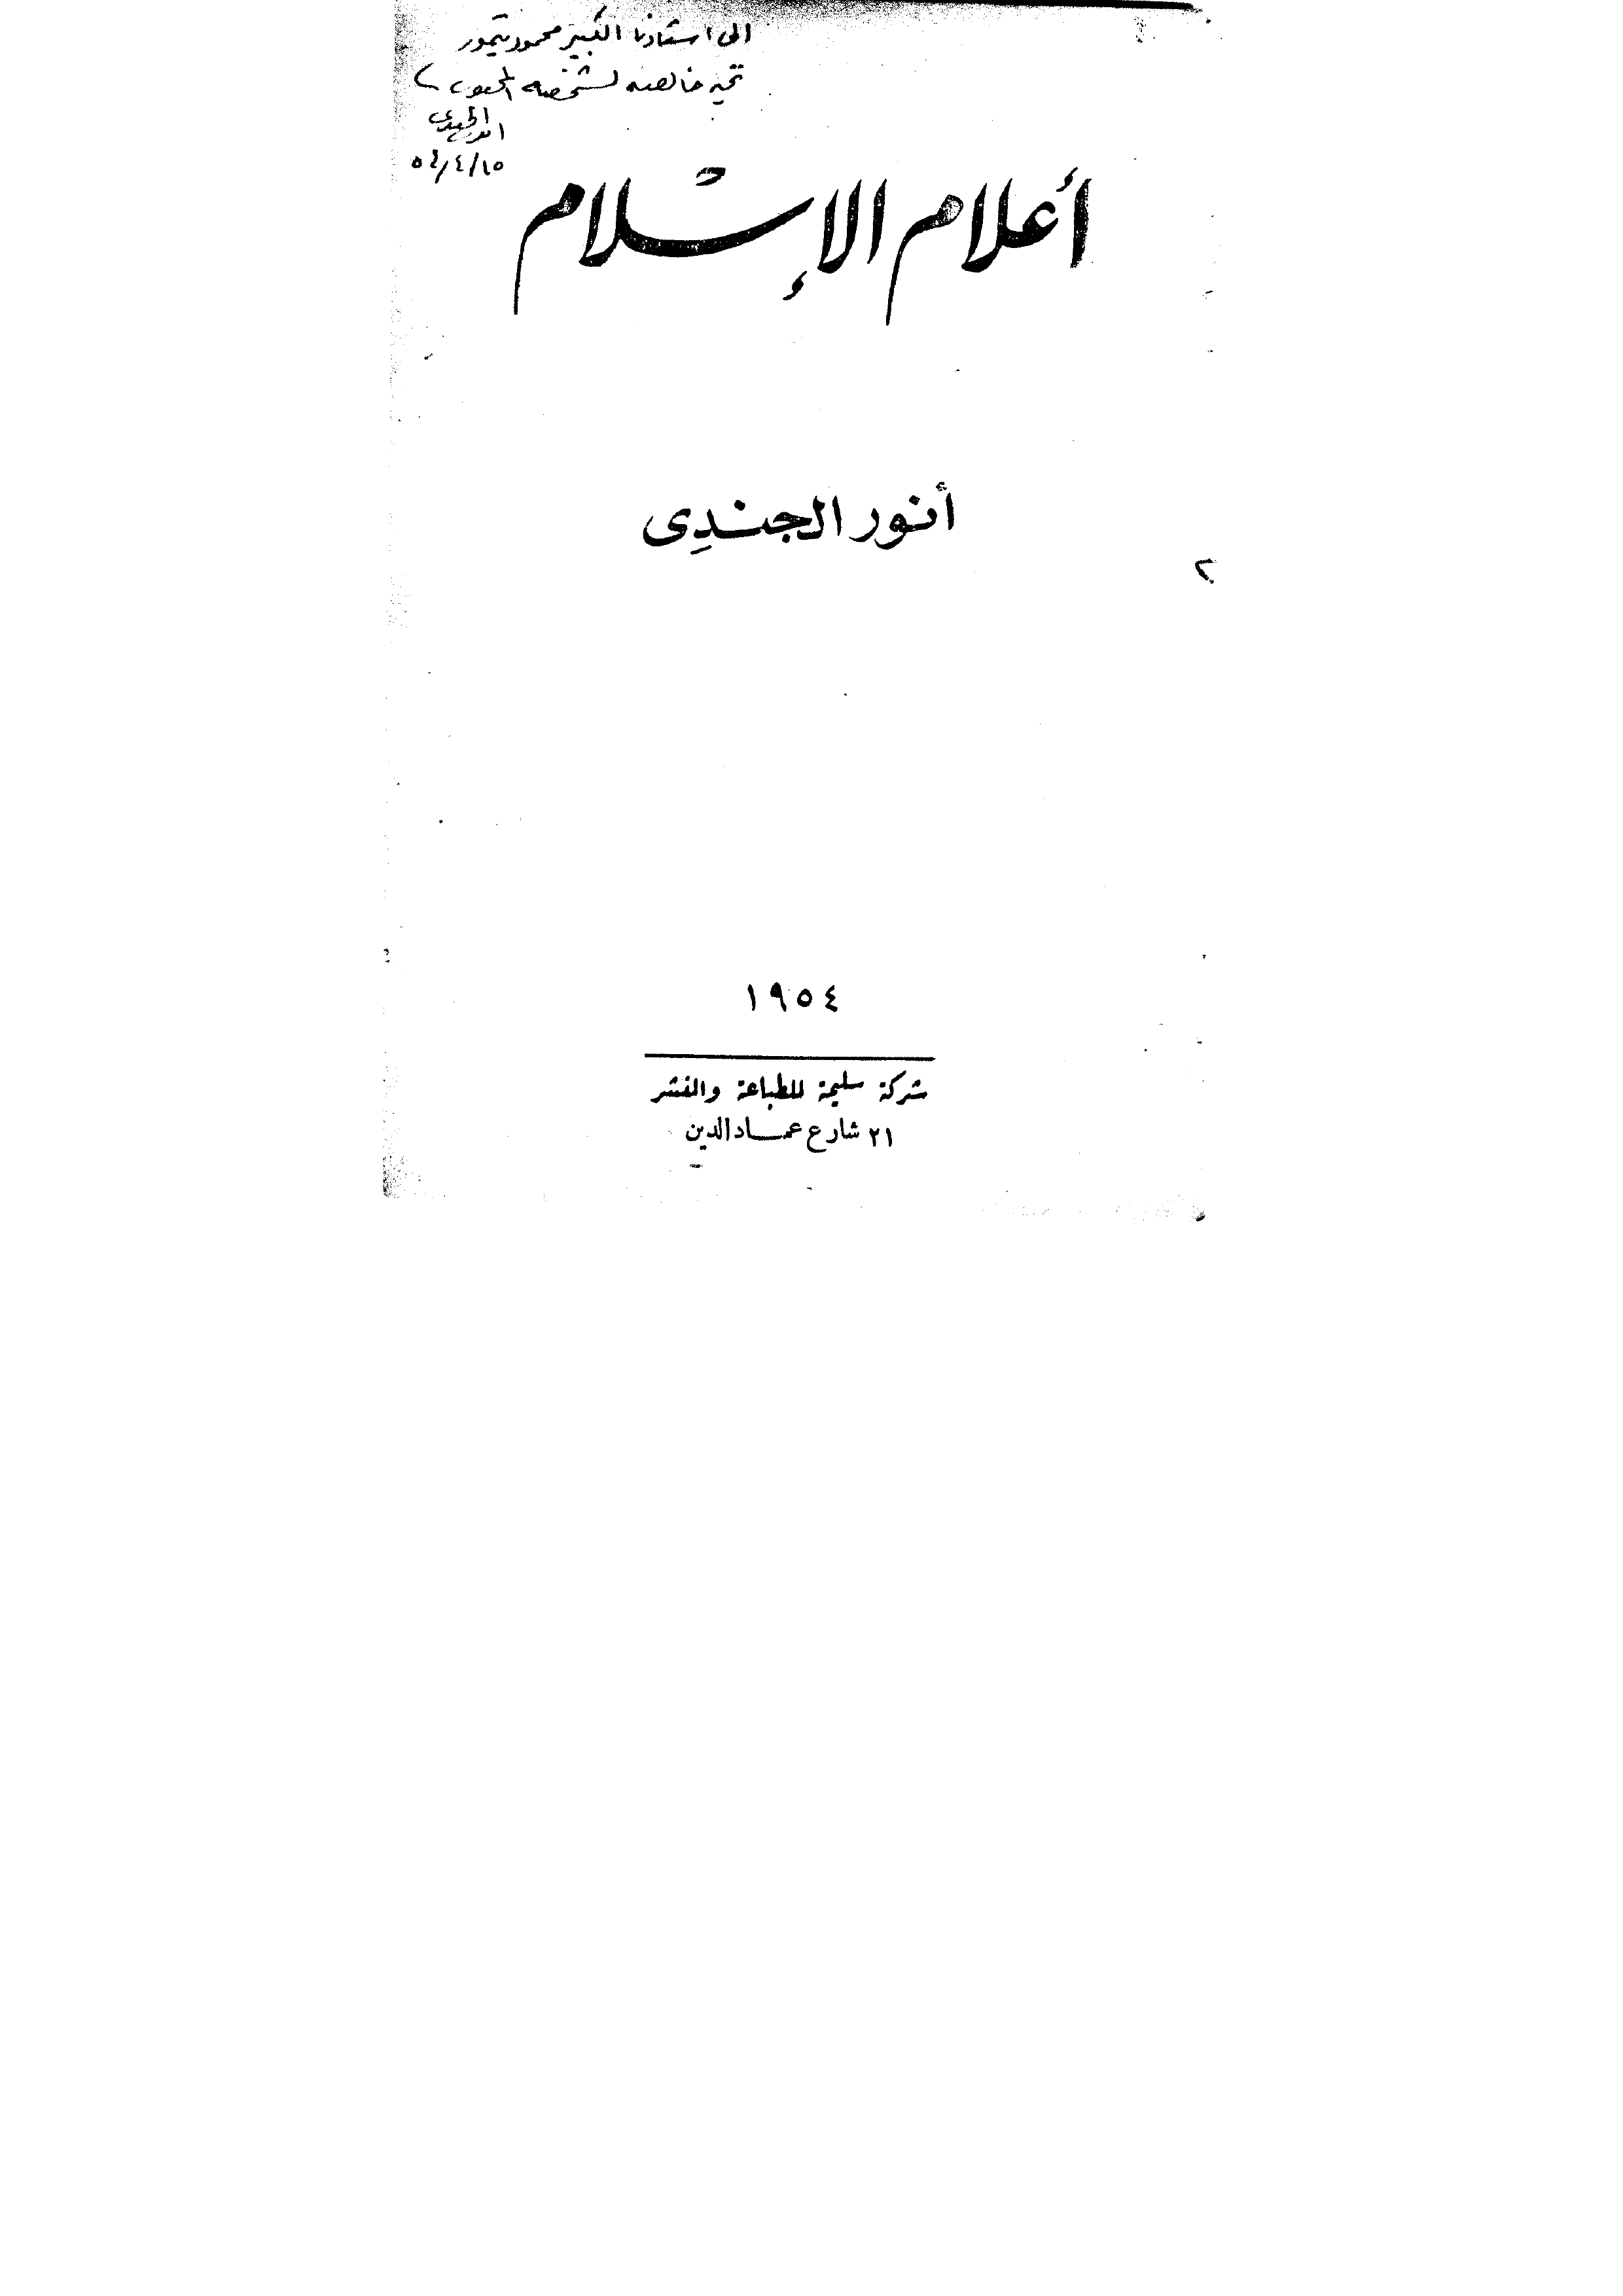 الى استاذنا الكبير محمود تيمور
تحيه خالصه لشخصه المحبوب
انور الجندى
٥٤/٤/١٥
أعلام الإسلام
أنور الجندى
١٩٥٤
شركة سليمة للطباعة والنشر
٢١ شارع عماد الدين